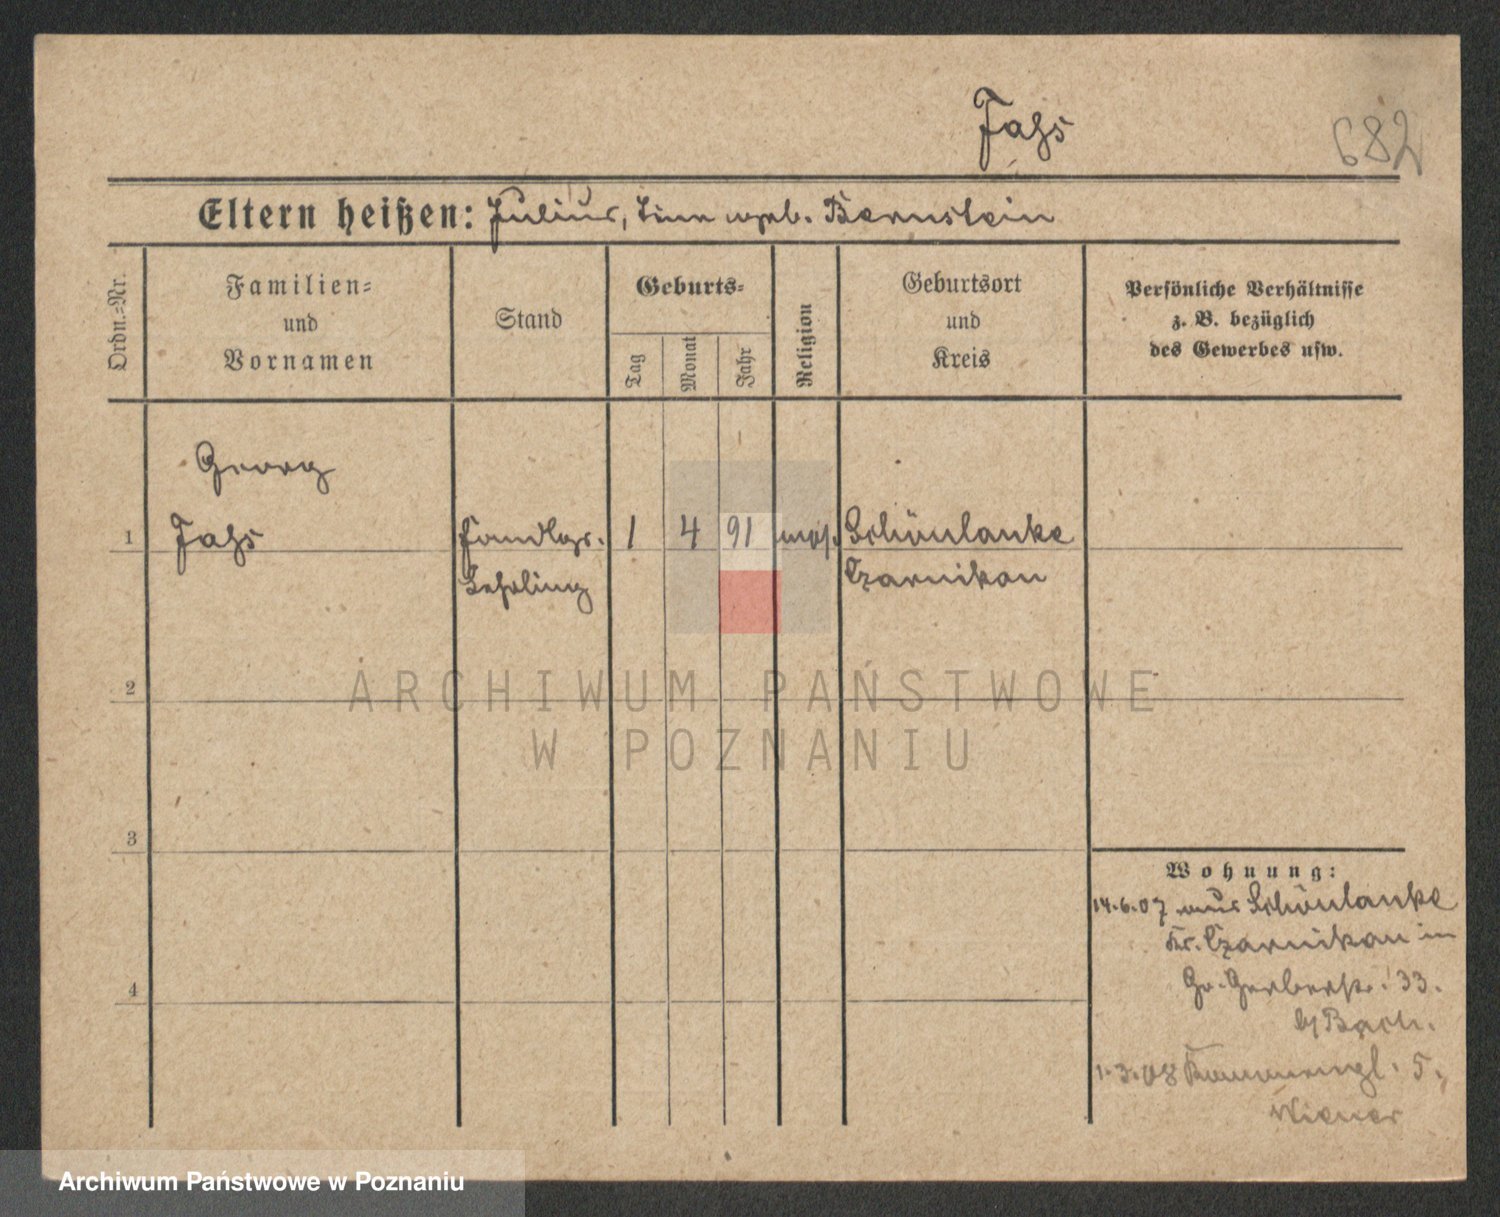 Fahs
682
Eltern heißen: Julius, Lina geb. Bernstein
Ordn.=Nr.
Familien=
und
Vornamen
Stand
Geburts=
Tag
Monat
Jahr
Religion
Geburtsort
und
Kreis
Persönliche Verhältnisse
z. B. bezüglich
des Gewerbes usw.
Georg
1 Fahs Handlgs. 1 4 91 mos. Schönlanke
Lehrling Czarnikau
2
ARCHIWUM PAŃSTWOWE
W POZNANIU
3
Wohnung:
14.6.07 aus Schönlanke
Kr. Czarnikau in
4
Gr. Gerberstr. 33.
b/ Bach.
1.3.08 5.
Wiener
Archiwum Państwowe w Poznaniu